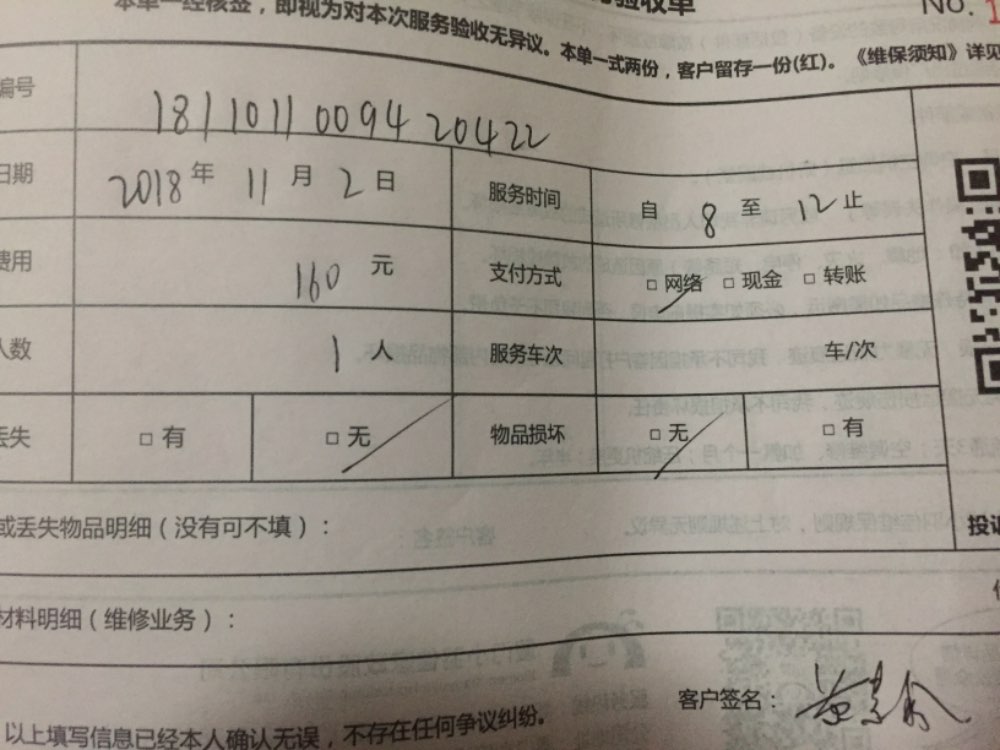 验收单 No. 1
本单一经核金，即视为对本次服务验收无异议。本单一式两份，客户留存一份(红)。《维保须知》详见
编号 18110110094 20422
日期 2018年 11月 2日 服务时间 自 8 至 12 止
费用 160 元 支付方式 □ 网络 □ 现金 □ 转账
人数 1 人 服务车次 车/次
丢失 □ 有 □ 无 物品损坏 □ 无 □ 有
或丢失物品明细（没有可不填）： 投诉
材料明细（维修业务）：
客户签名：
以上填写信息已经本人确认无误，不存在任何争议纠纷。